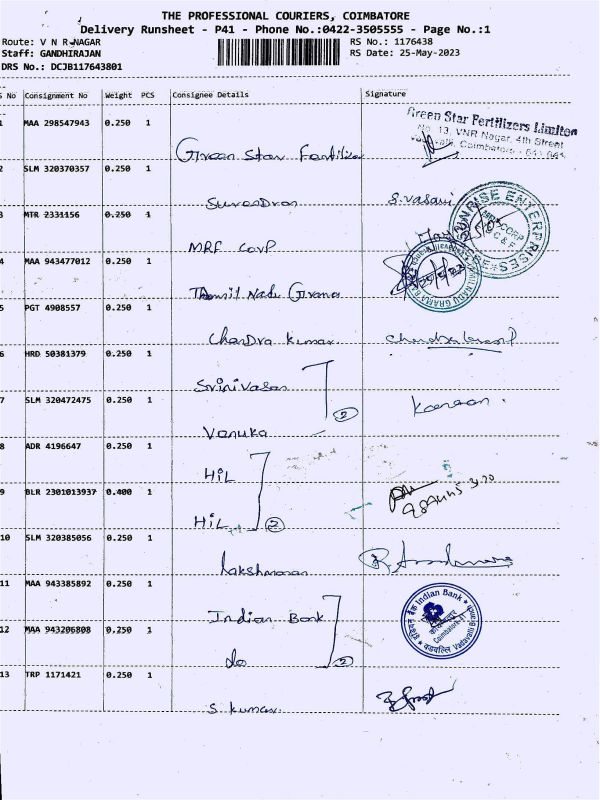 THE PROFESSIONAL COURIERS, COIMBATORE
Delivery Runsheet - P41 - Phone No.:0422-3505555 - Page No.:1
Route: V N R NAGAR
RS No.: 1176438
Staff: GANDHIRAJAN
RS Date: 25-May-2023
DRS No.: DCJB117643801
S No Consignment No Weight PCS Consignee Details Signature
1 MAA 298547943 0.250 1
Green Star Fertilizer
Green Star Fertilizers Limited
No. 13, VNR Nagar, 4th Street
Coimbatore - 641 041
2 SLM 320370357 0.250 1
S. Vasavi
3 MTR 2331156 0.250 1
MRF Corp
SUNRISE ENTERPRISES
MRF CORP
C & F
4 MAA 943477012 0.250 1
Tamil Nadu Grama
5 PGT 4908557 0.250 1
Chandra Kumar
6 HRD 50381379 0.250 1
Srinivasan
7 SLM 320472475 0.250 1
Vanuka
2
8 ADR 4196647 0.250 1
HIL
9 BLR 2301013937 0.400 1
HIL
2
10 SLM 320385056 0.250 1
Lakshmanan
11 MAA 943385892 0.250 1
Indian Bank
Indian Bank
Vadavalli Branch
12 MAA 943206808 0.250 1
do
2
13 TRP 1171421 0.250 1
S. Kumar